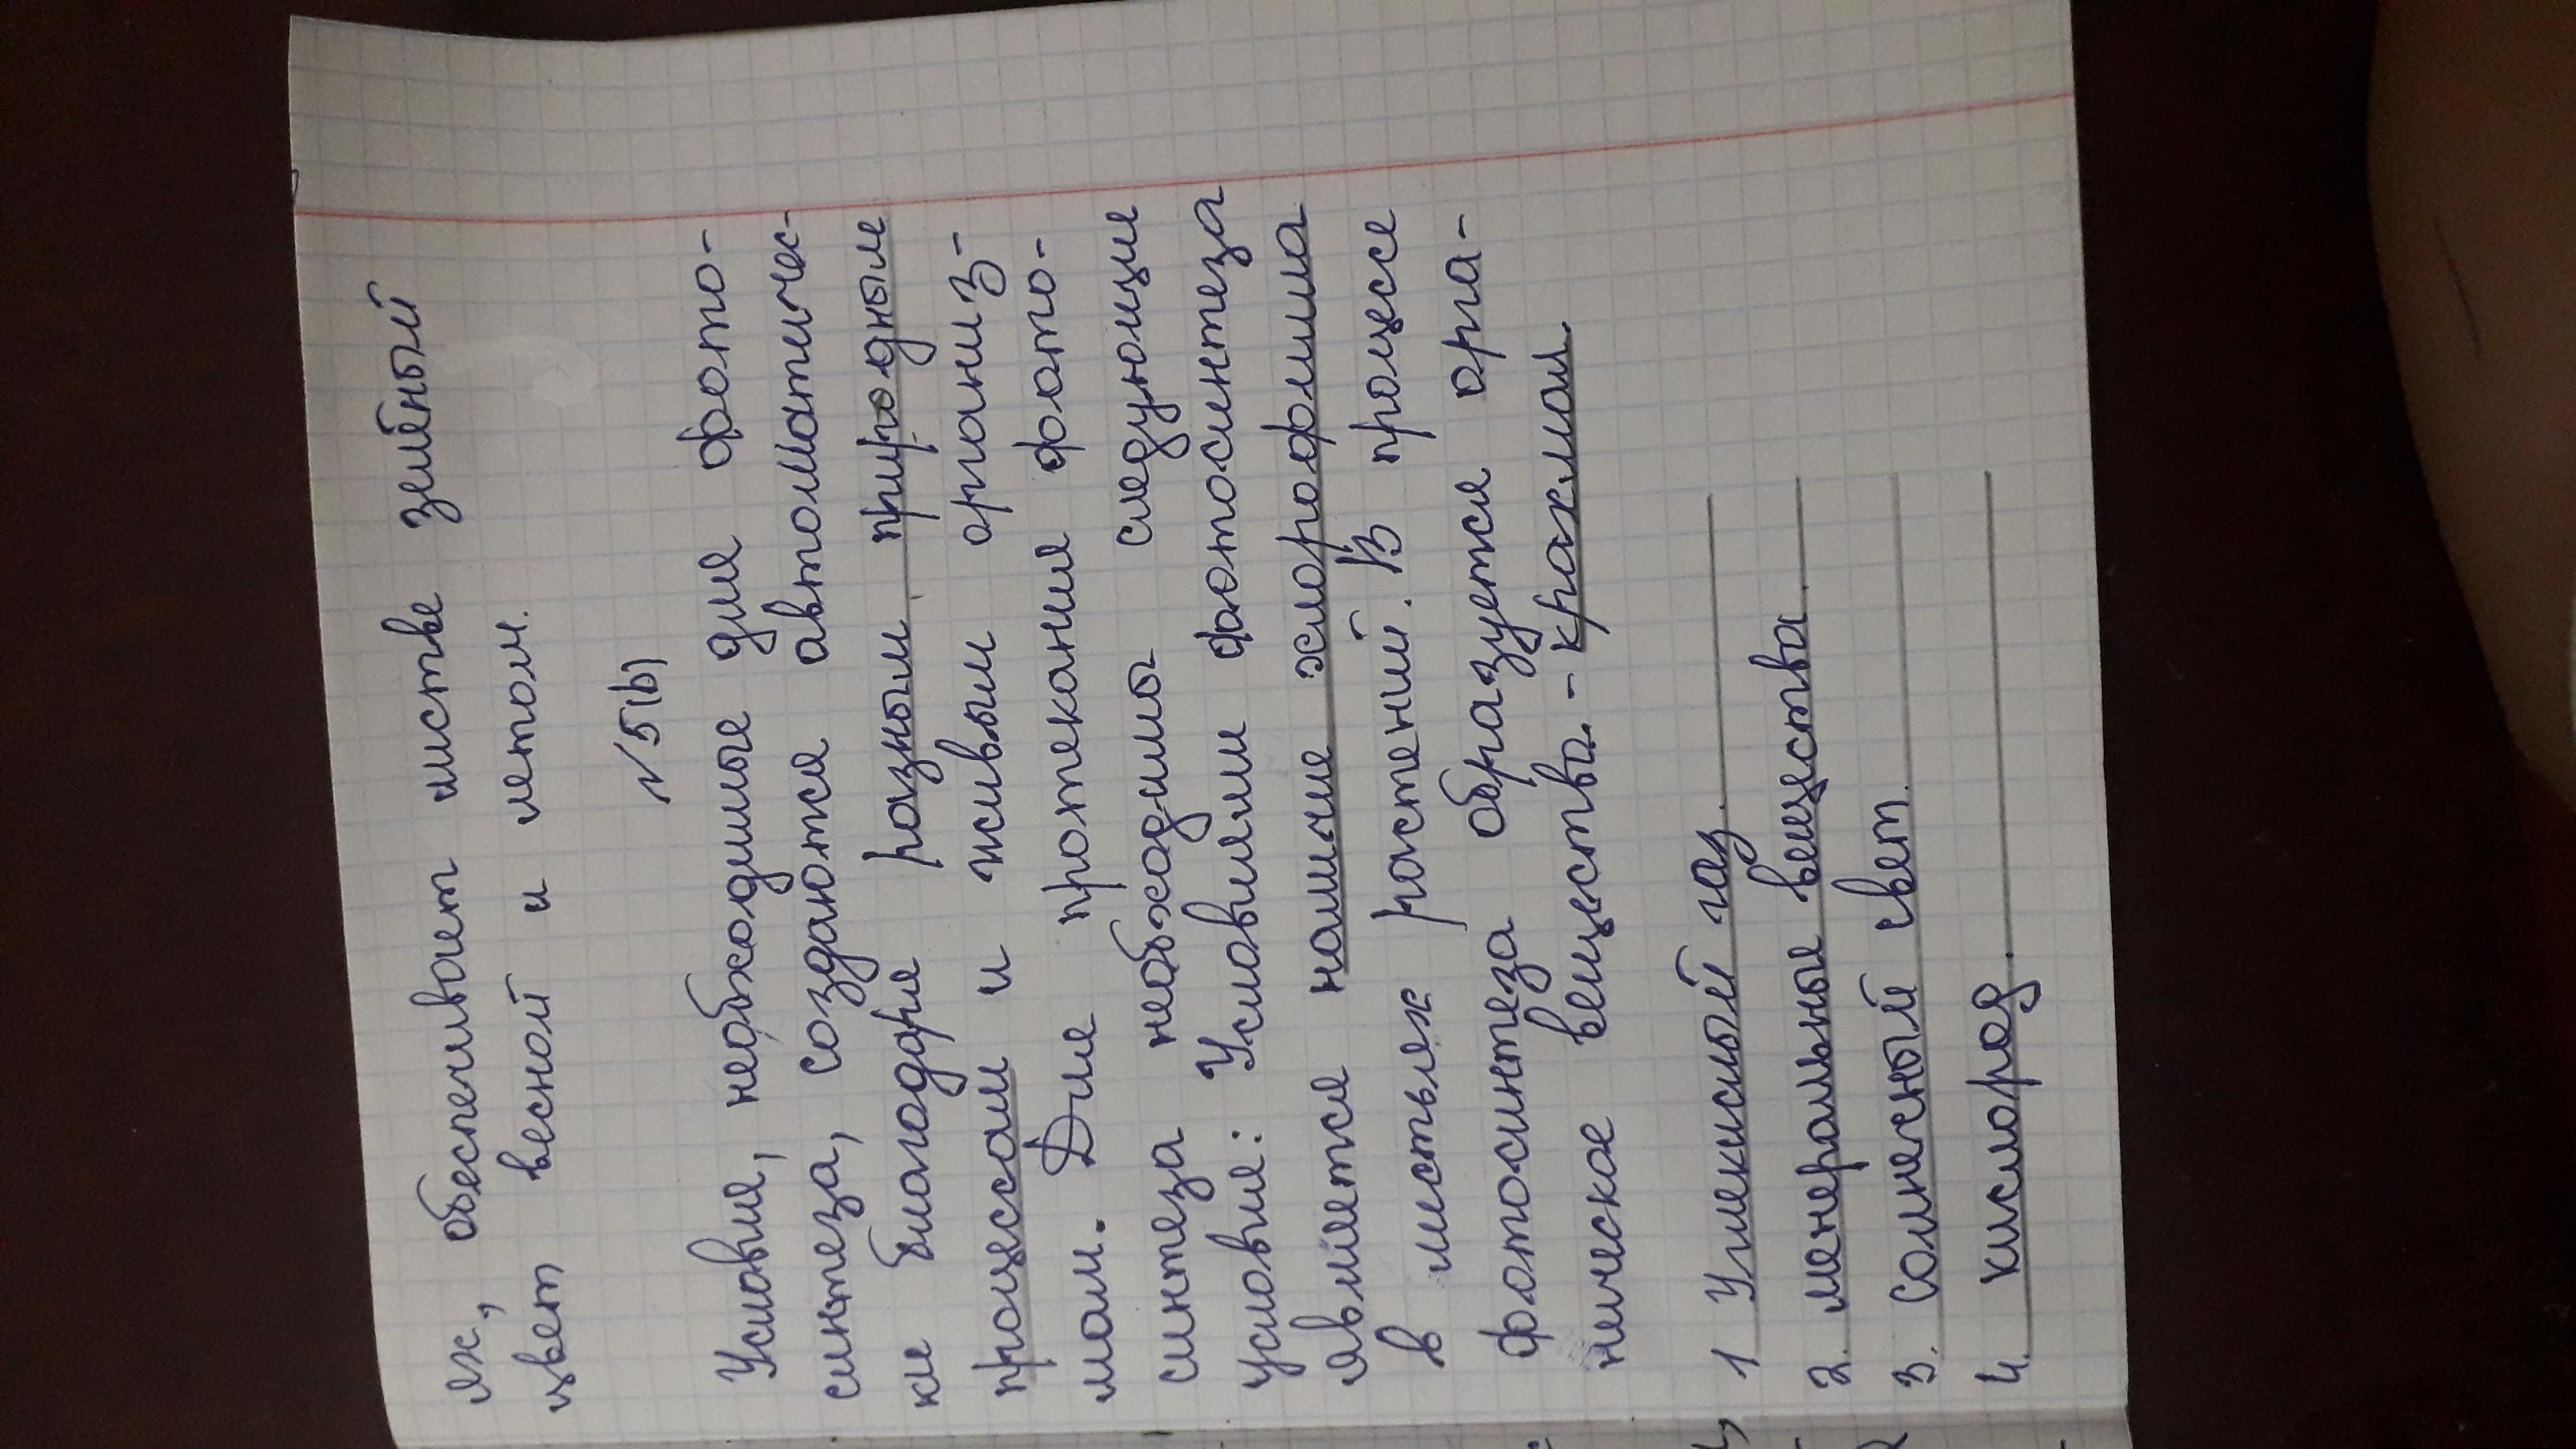 лх, обеспечивает листве зелёный
цвет весной и летом.
№5(b)
Условие, необходимые для фото-
синтеза, создаются автоматичес-
ки благоддря разным природным
процессам и живым организ-
мам. Для протекание фото-
синтеза необходимы следующие
условие: Условиями фотосинтеза
является наличие хлорофилла
в листьях растений. В процессе
фотосинтеза образуется орга-
ническое вещества - крахмал.
1 Углекислый газ.
2. менеральные вещества.
3. солнечный свет.
4. кислород.